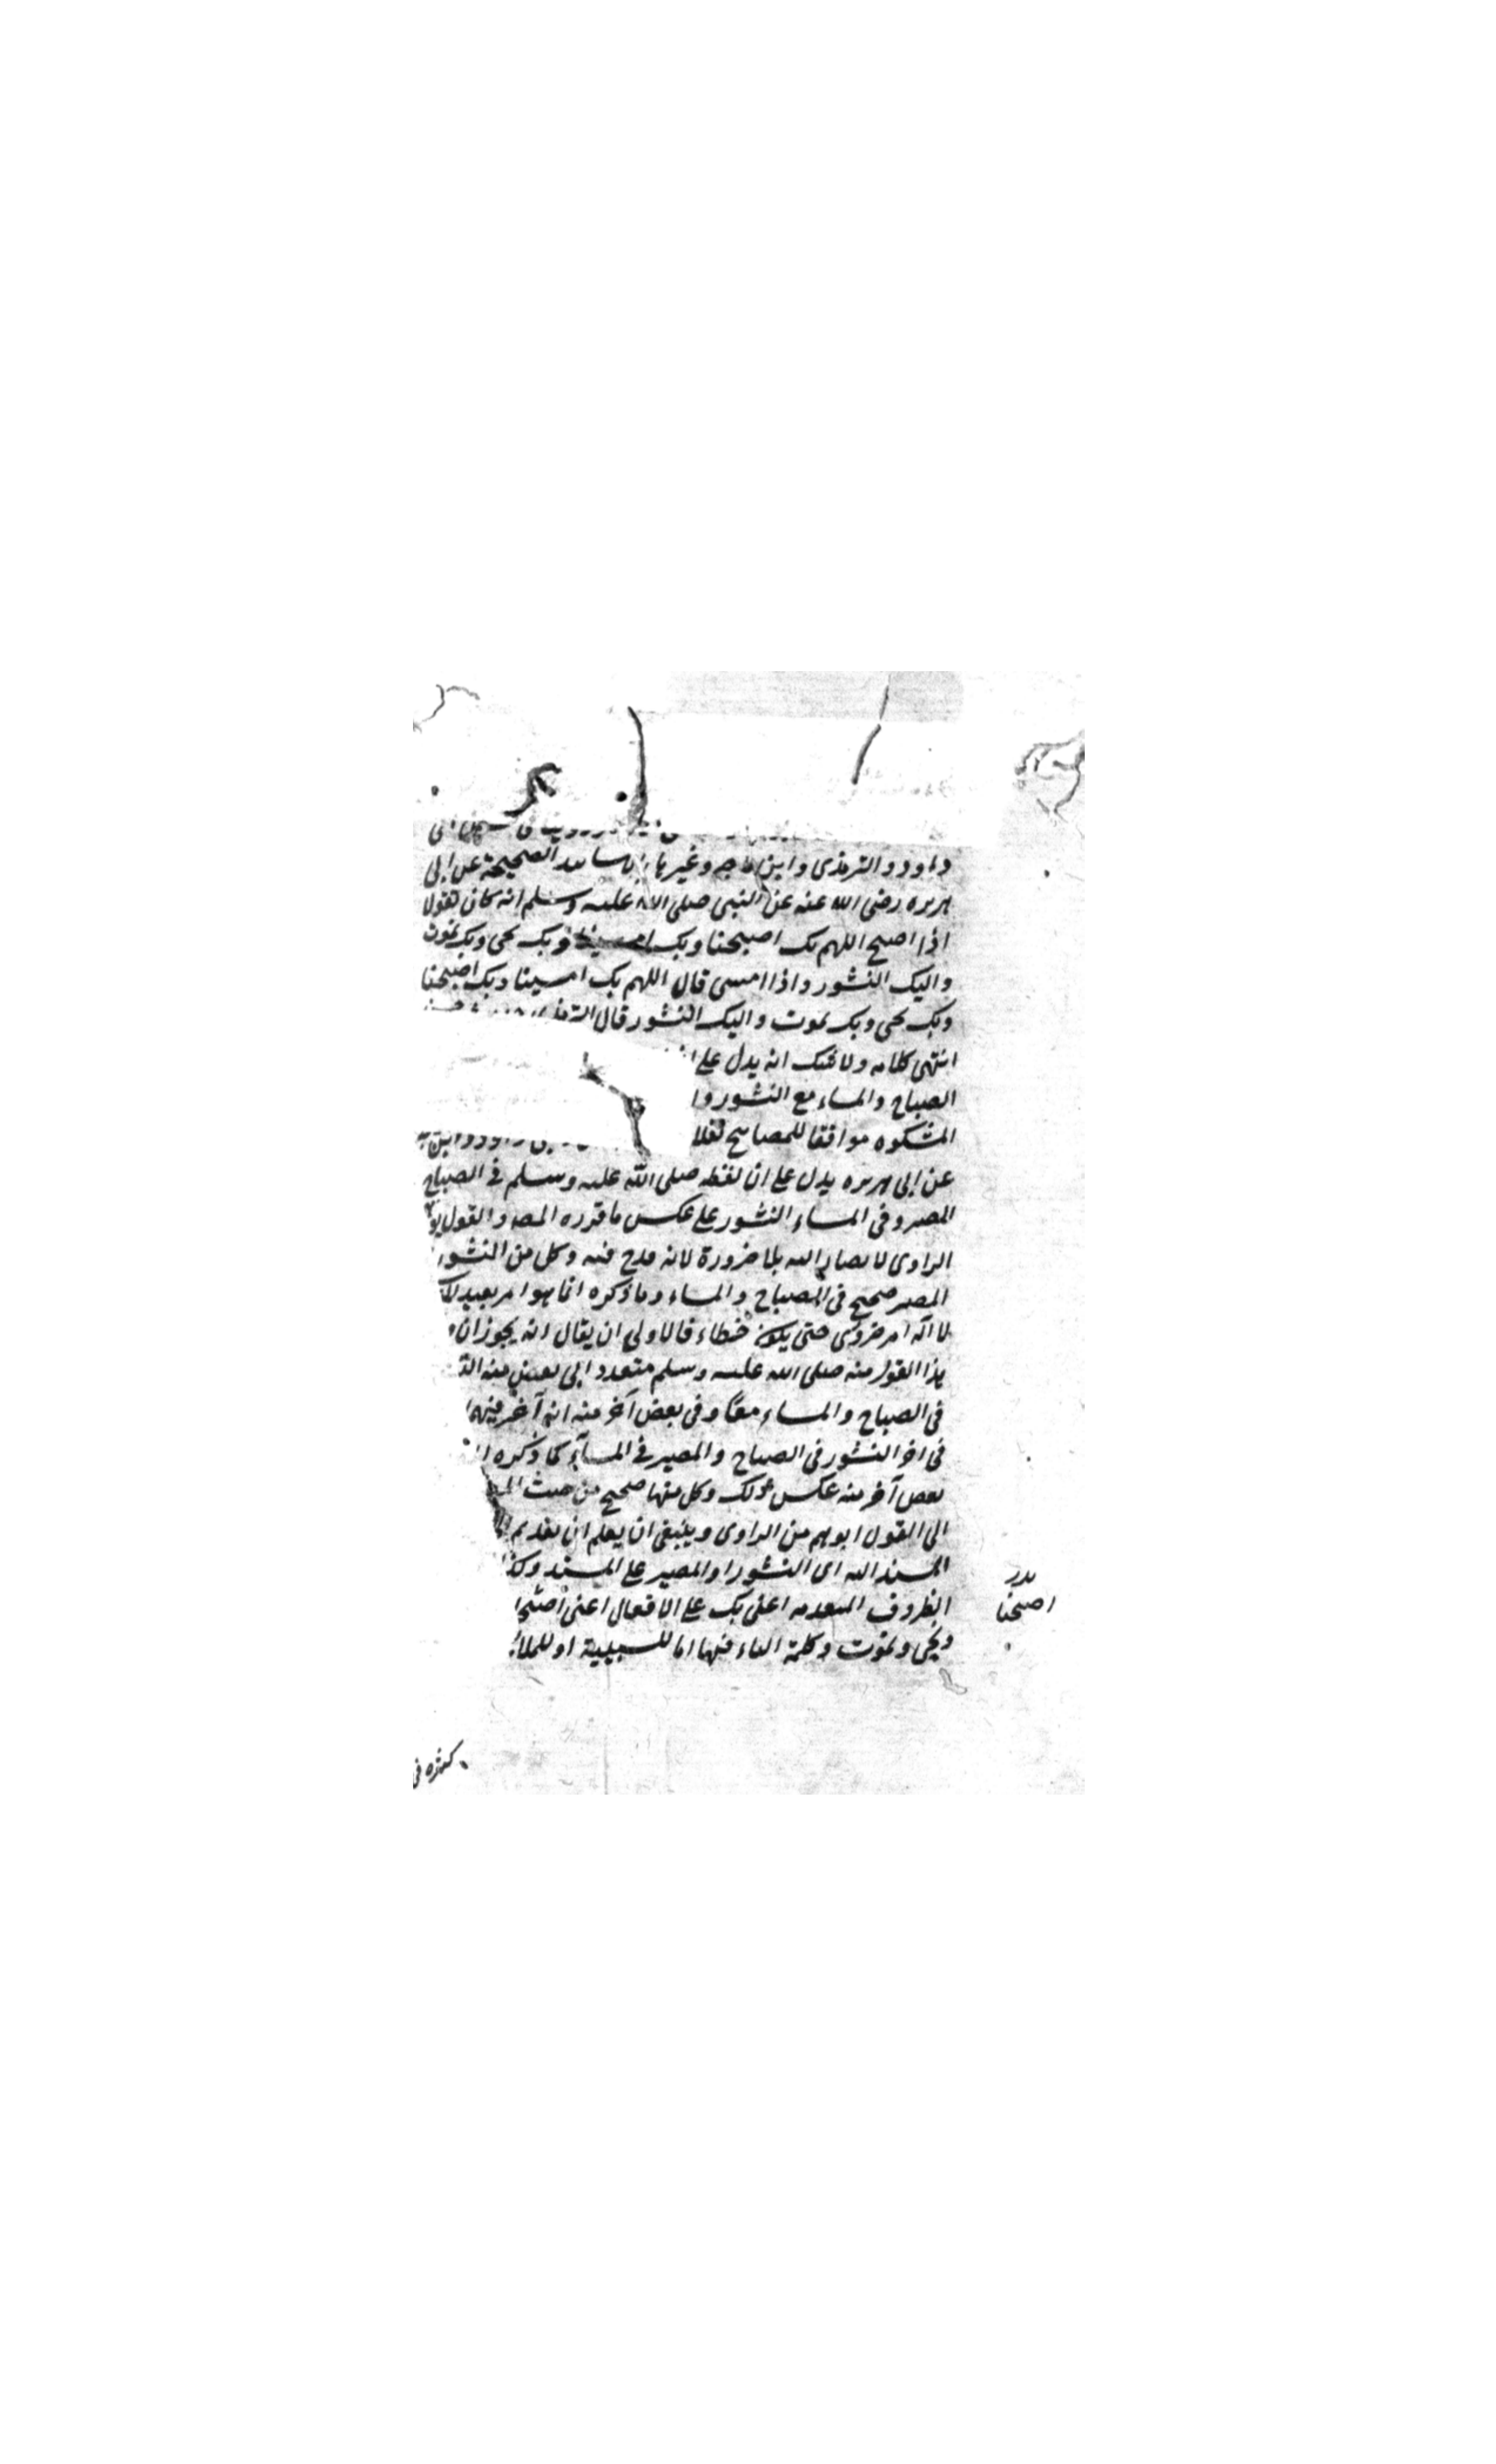 داود والترمذى وابن ماجه وغيرها بالاسانيد الصحيحة عن ابى
هريره رضى الله عنه عن النبى صلى الله عليه وسلم انه كان يقول
اذا اصبح اللهم بك اصبحنا وبك امسينا وبك نحى وبك نموت
واليك النشور واذا امسى قال اللهم بك امسينا وبك اصبحنا
وبك نحى وبك نموت واليك النشور قال
انتهى كلامه ولا شك انه يدل على
الصباح والمساء مع النشور وا
المشكوه موافقا للمصابيح نقلا داود وابن
عن ابى هريره يدل على ان لفظه صلى الله عليه وسلم فى الصباح
المصير وفى المساء النشور على عكس ما قرره المصه والقول
الراوى لا يصار اليه بلا ضرورة لانه قدح فيه وكل من النشور
المصير صحيح فى الصباح والمساء وما ذكره انما هو امر بعيد
لا انه امر ضرورى حتى يكون خطاء فالاولى ان يقال انه يجوز ان
هذا القول منه صلى الله عليه وسلم متعدد ابى بعض منه
فى الصباح والمساء معًا وفى بعض آخر منه انه آخر فيهما
فى اخر النشور فى الصباح والمصير فى المسآء كما ذكره
بعض آخر منه عكس ذلك وكل منها صحيح من حيث
الى القول ابوهم من الراوى وينبغى ان يعلم ان تقديم
المسند اليه اى النشور او المصير على المسند وكذا
الظروف المتعدده اعنى بك على الافعال اعنى اصبحنا
ونحى ونموت وكلمة الباء فيها اما للسببية او للملا
اصبحنا